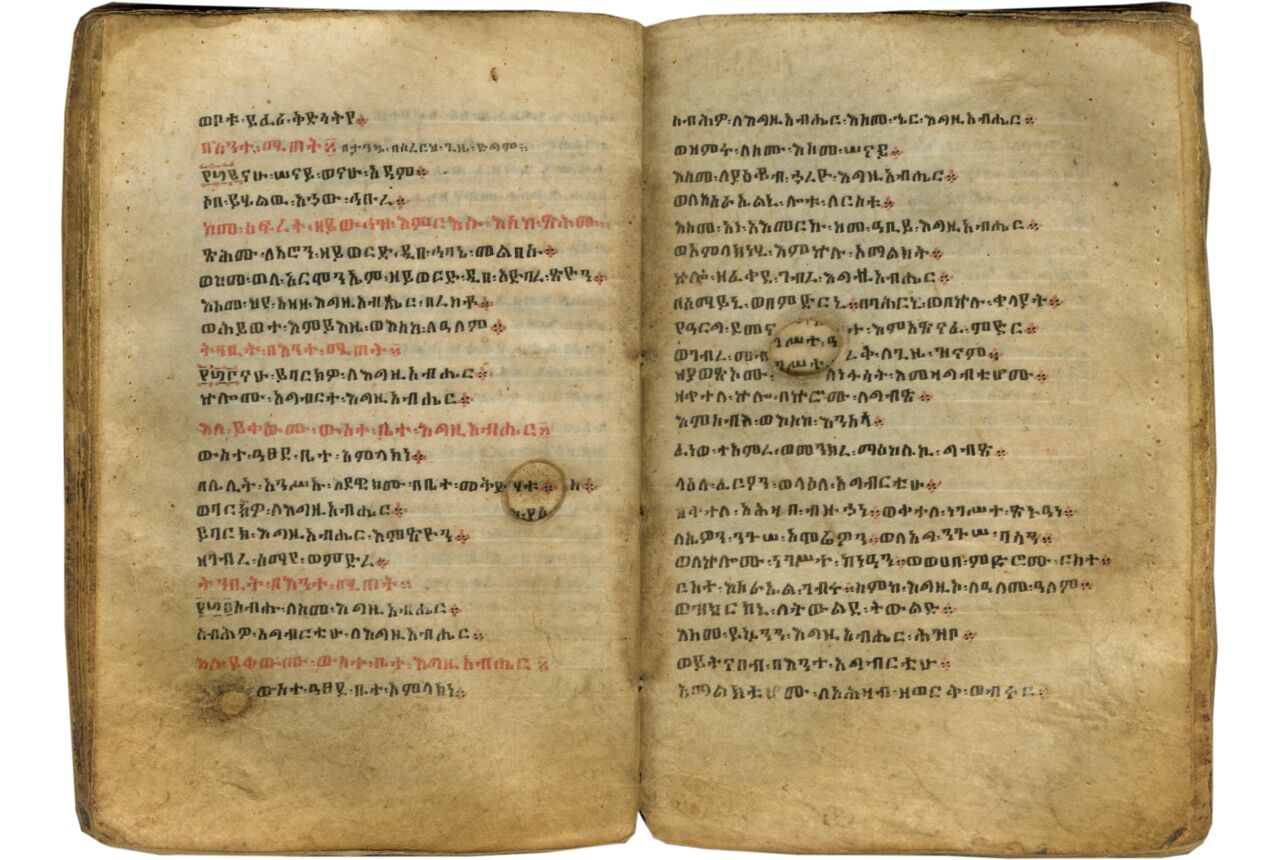 ወቦቱ፡ይፈሪ፡ቅድሳትየ።
በእንተ፡ሚጠት፡
፻፴፪ናሁ፡ሠናይ፡ወናሁ፡አዳም።
ሶበ፡ይሄልዉ፡አኃው፡ኅቡረ።
ከመ፡ዕፍረት፡ዘይውኅዝ፡እምርእሱ፡እስከ፡ጽሕሙ።
ጽሕሙ፡ለአሮን፡ዘይወርድ፡ዲበ፡ሕባኔ፡መልበሱ።
ወከመ፡ጠለ፡አርሞንኤም፡ዘይወርድ፡ዲበ፡አድባረ፡ጽዮን።
እስመ፡ህየ፡አዘዘ፡እግዚአብሔር፡በረከቶ።
ወሕይወተ፡እምይእዜ፡ወእስከ፡ለዓለም።
ትንቢት፡በእንተ፡ሚጠት።
፻፴፫ናሁ፡ይባርክዎ፡ለእግዚአብሔር።
ኵሎሙ፡አግብርተ፡እግዚአብሔር።
እለ፡ይቀውሙ፡ውስተ፡ቤተ፡እግዚአብሔር።
ውስተ፡ዓፀደ፡ቤተ፡አምላክነ።
በሌሊት፡አንሥኡ፡እደዊክሙ፡በቤተ፡
ወባርክዎ፡ለእግዚአብሔር።
ይባርክ፡እግዚአብሔር፡እምጽዮን።
ዘገብረ፡ሰማየ፡ወምድረ።
ትንቢት፡በእንተ፡ሚጠት።
፻፴፬ሰብሑ፡ለስመ፡እግዚአብሔር።
ሰብሕዎ፡አግብርቲሁ፡ለእግዚአብሔር።
እለ፡ይቀውሙ፡ውስተ፡ቤተ፡እግዚአብሔር።
ውስተ፡ዓፀደ፡ቤተ፡አምላክነ።
ሰብሕዎ፡ለእግዚአብሔር፡እስመ፡ኄር፡እግዚአብሔር።
ወዘምሩ፡ለስሙ፡እስመ፡ሠናይ።
እስመ፡ለያዕቆብ፡ኃረዮ፡እግዚአብሔር።
ወለእስራኤልኒ፡ሎቱ፡ለርስቱ።
እስመ፡አነ፡አእመርኩ፡ከመ፡ዓቢይ፡እግዚአብሔር።
ወአምላክነሂ፡እምኵሉ፡አማልክት።
ኵሎ፡ዘፈቀደ፡ገብረ፡እግዚአብሔር።
በሰማይኒ፡ወበምድርኒ።በባሕርኒ፡ወበኵሉ፡ቀላያት።
የዓርግ፡ደመና እምአጽናፈ፡ምድር።
ወገብረ፡ ለጊዜ፡ዝናም።
ዘያወፅኦሙ፡ ለነፋሳት፡እመዛግብቲሆሙ።
ዘቀተለ፡ኵሎ፡በኵሮሙ፡ለግብፅ።
እምሰብእ፡ወእስከ፡እንስሳ።
ፈነወ፡ተአምረ፡ወመንክረ፡ማዕከሌኪ፡ግብፅ።
ላዕለ፡ፈርዖን፡ወላዕለ፡አግብርቲሁ።
ዘቀተለ፡አሕዛበ፡ብዙኃነ።ወቀተለ፡ነገሥተ፡ጽኑዓነ።
ለሴዎን፡ንጉሠ፡አሞሬዎን፡ወለአግ፡ንጉሠ፡ባሳን።
ወለኵሎሙ፡ነገሥተ፡ከነዓን።ወወሀበ፡ምድሮሙ፡ርስተ።
ርስተ፡እስራኤል፡ገብሩ።ስምከ፡እግዚኦ፡ለዓለመ፡ዓለም።
ወዝክርከኒ፡ለትውልደ፡ትውልድ።
እስመ፡ይኴንን፡እግዚአብሔር፡ሕዝቦ።
ወይትናበብ፡በእንተ፡አግብርቲሁ።
አማልክቲሆሙ፡ለአሕዛብ፡ዘወርቅ፡ወብሩር።